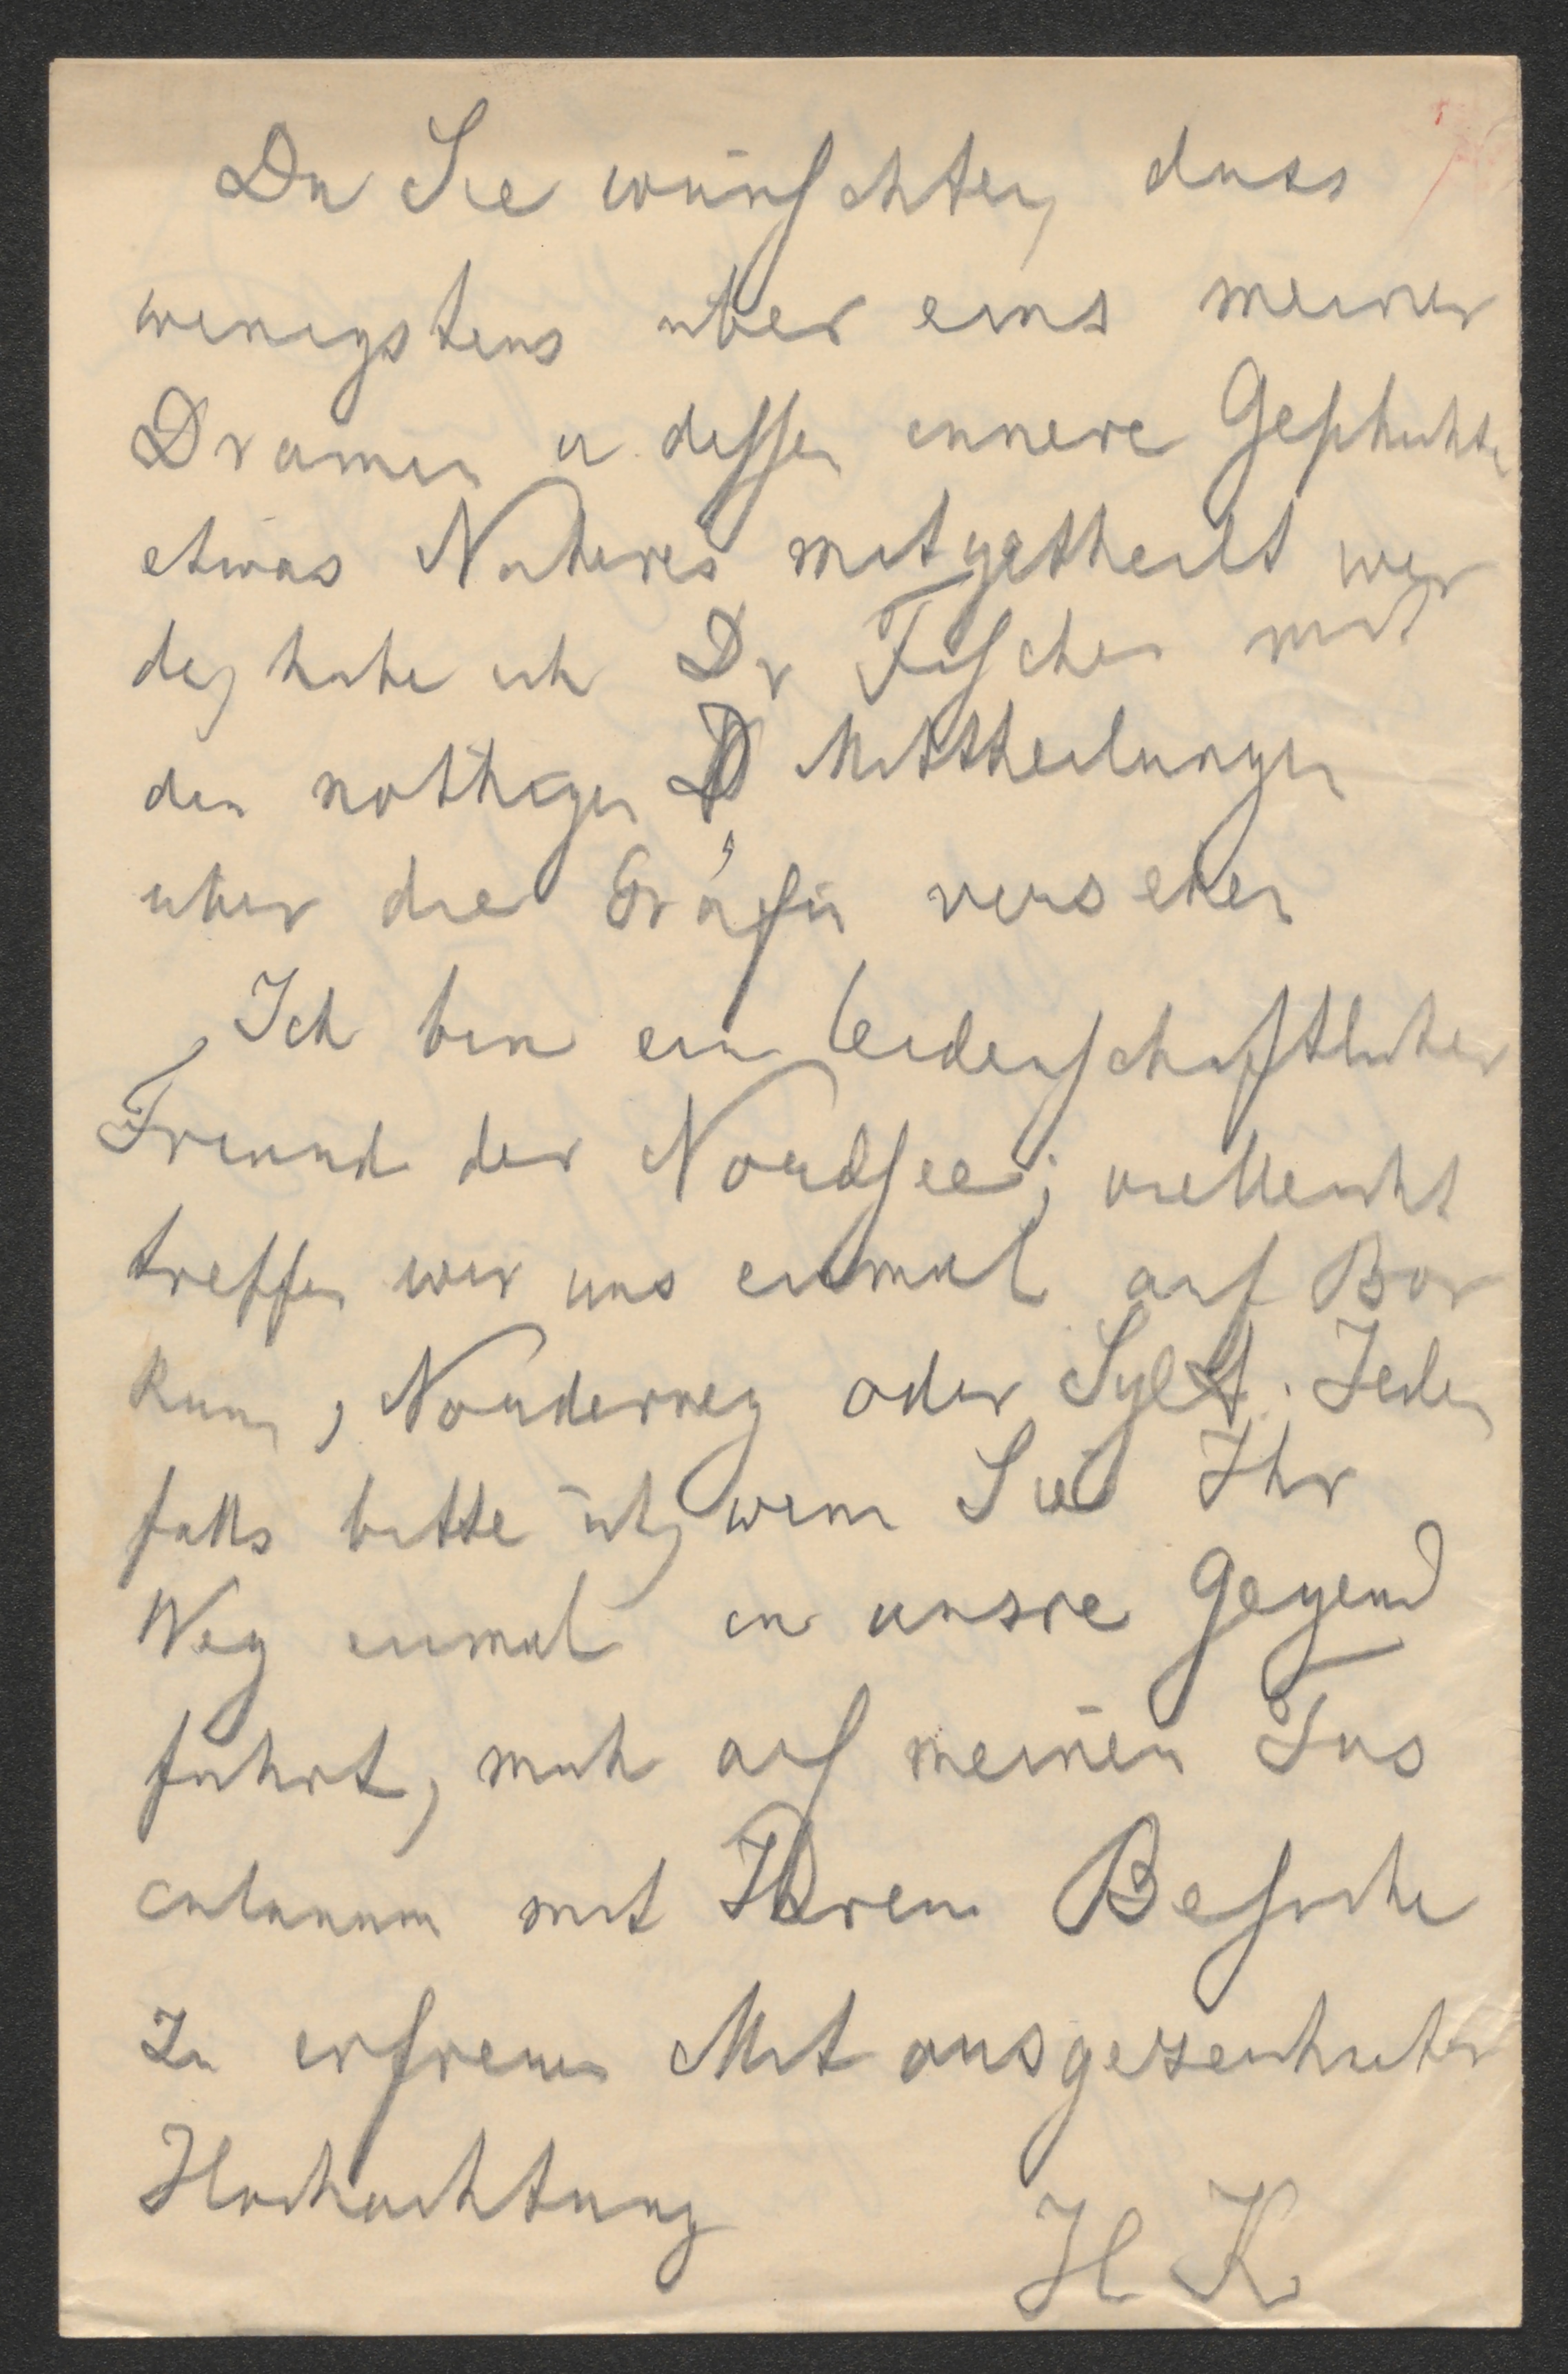 Da Sie wünschten, dass
wenigstens über eins meiner
Dramen u. dessen innere Geschichte
etwas Näheres mitgetheilt wer
den, habe ich Dr Fischer mit
den nöthigen Mittheilungen
über die Gräfin versehen
Ich bin ein leidenschaftlicher
Freund der Nordsee; vielleicht
treffen wir uns einmal auf Bor
kum, Norderney oder Sylt. Jeden
falls bitte ich, wenn Sie Ihr
Weg einmal in unsre Gegend
führt, mich auf meinem Tus
culanum mit Ihrem Besuche
zu erfreuen Mit ausgezeichneter
Hochachtung
H K